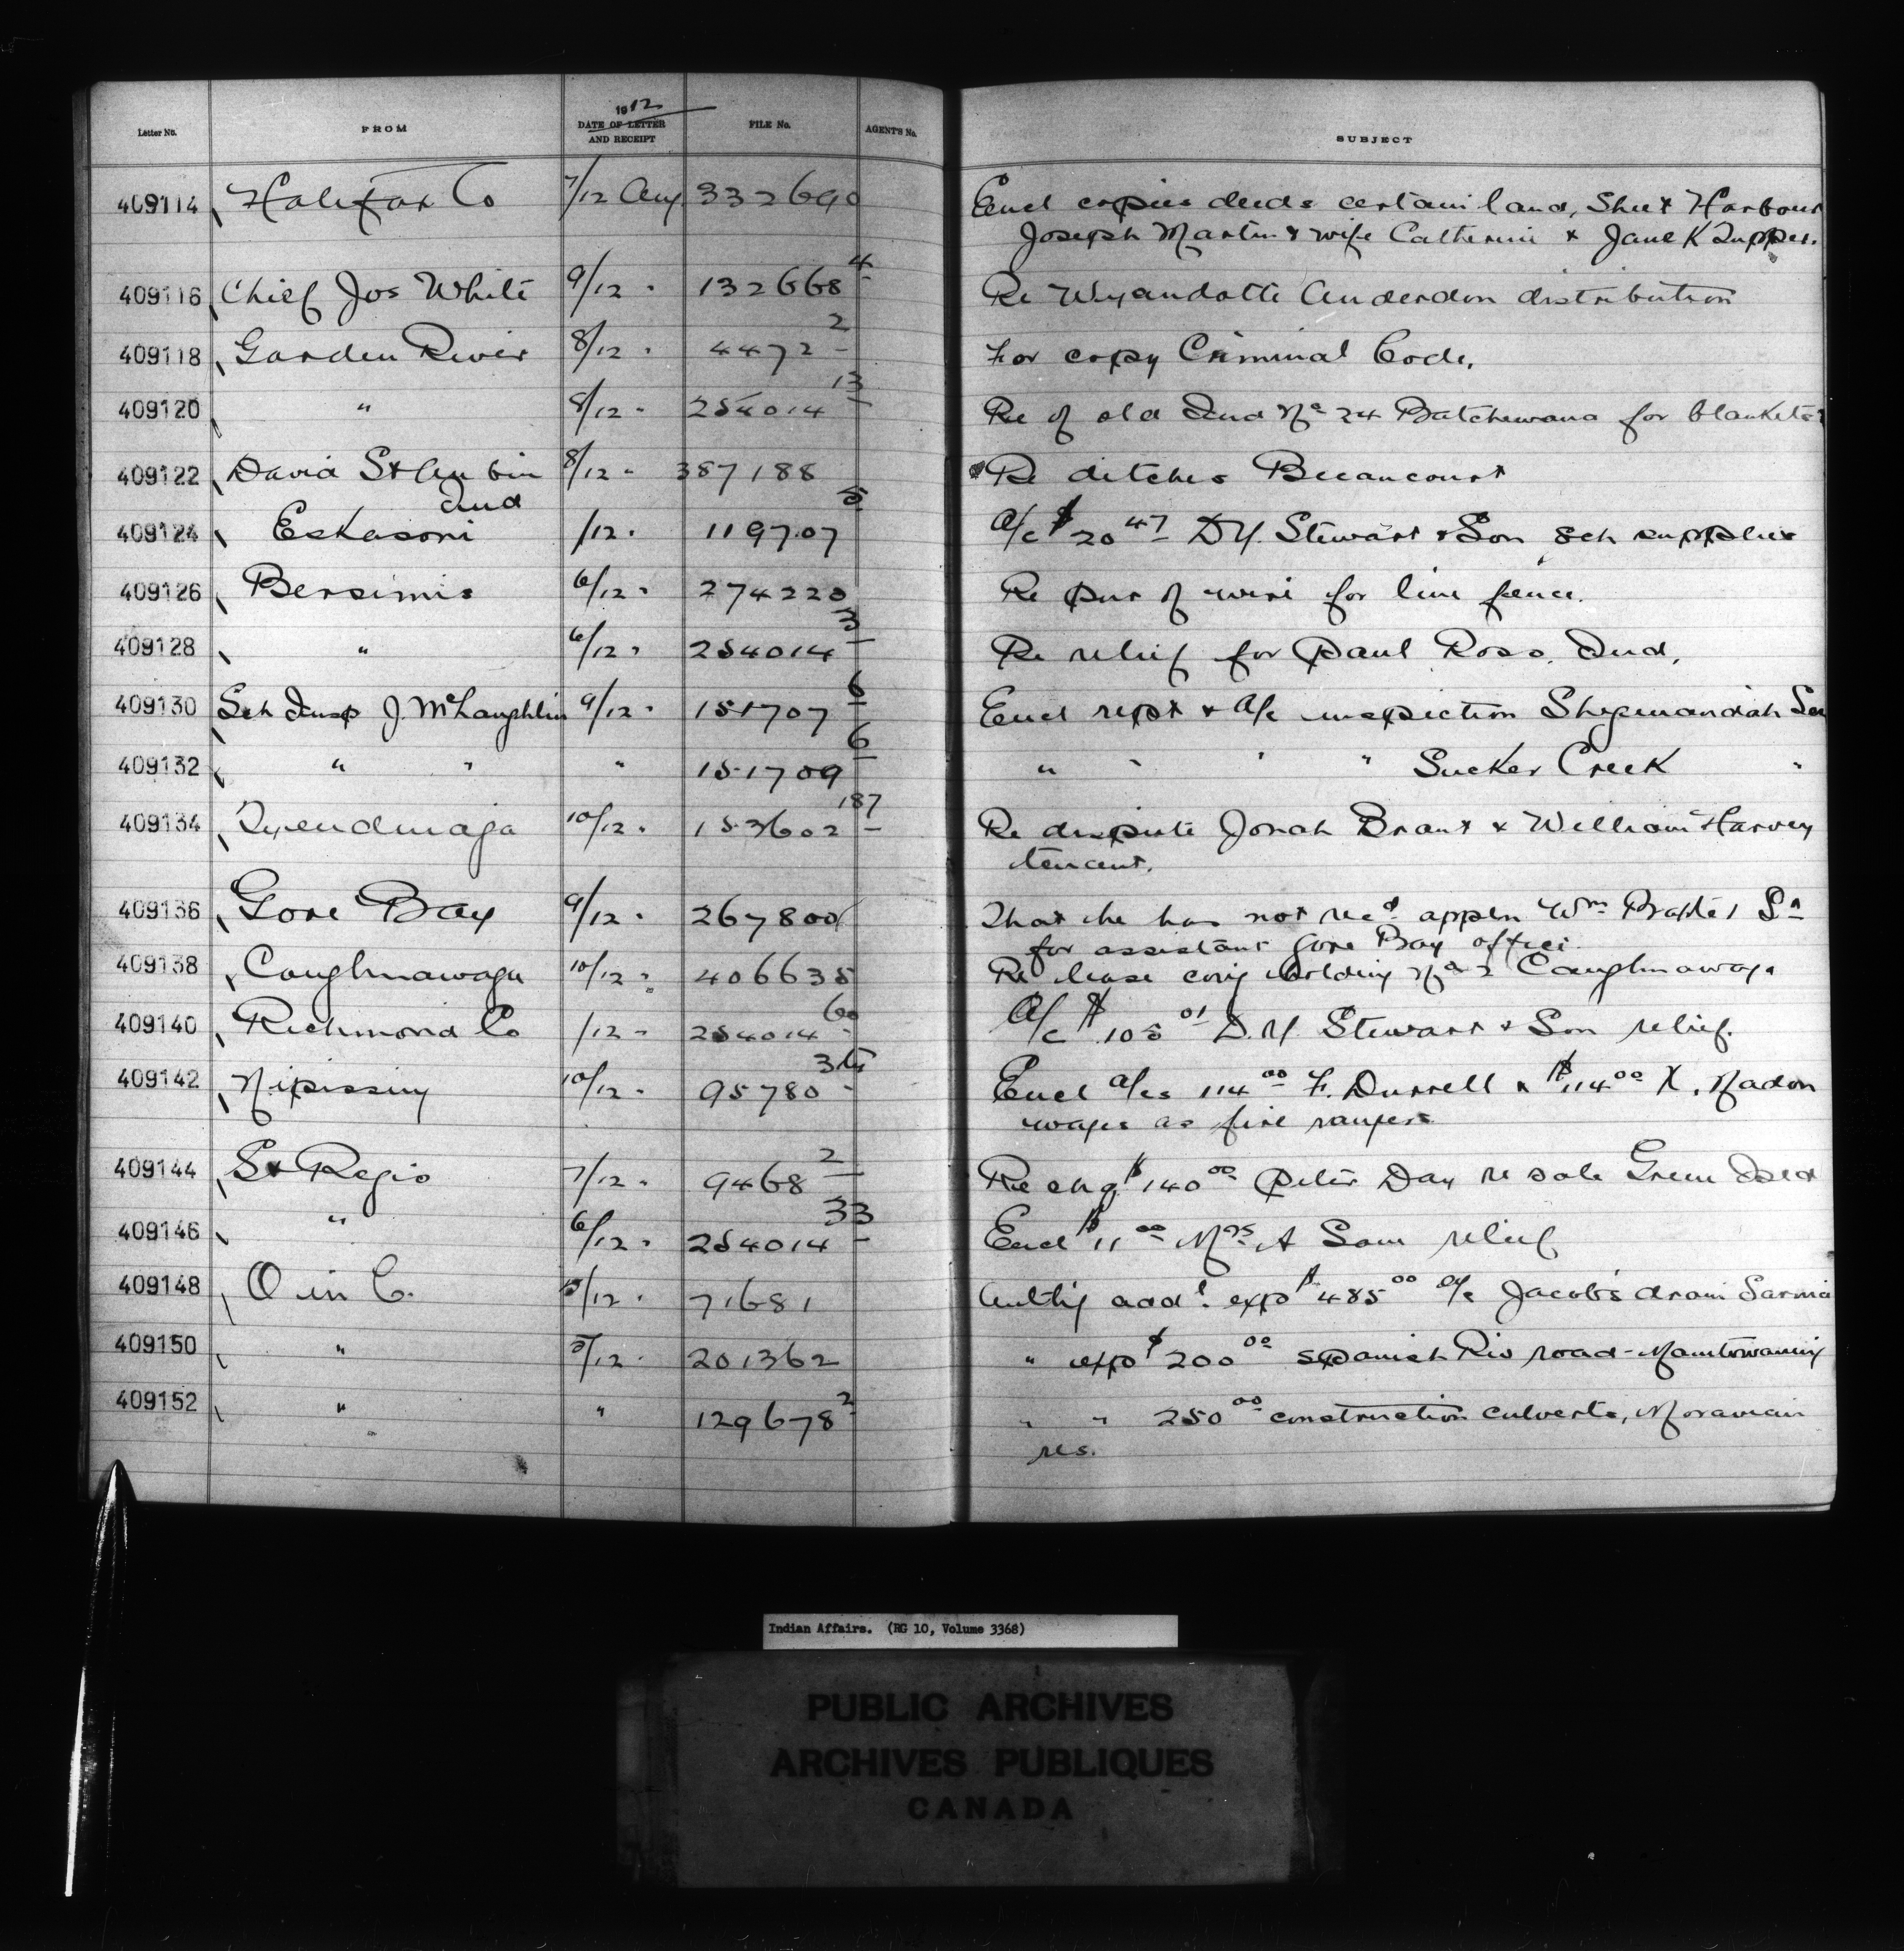 Letter No. FROM 1912 DATE OF LETTER AND RECEIPT FILE No. AGENT'S No. SUBJECT
409114 Halifax Co 7/12 Aug 332690 Encl copies deeds certain land, Sheet Harbour
Joseph Martin & wife Catherine & Jane K Tupper.
409116 Chief Jos White 9/12 " 132668 4 Re Wyandotte Anderdon distribution
409118 Garden River 8/12 " 4472 2 For copy Criminal Code.
409120 " 8/12 " 254014 13 Re of old Ind No 24 Batchewana for blankets
409122 David St Aubin Ind 8/12 " 387188 Re ditches Becancourt
409124 Eskasoni /12 " 119707 5 A/c $20 47 D.Y. Stewart & Son sch supplies
409126 Bersimis 6/12 " 274220 Re pur of wire for line fence.
409128 " 6/12 " 254014 3 Re relief for Paul Ross. Ind.
409130 Sch Insp J. McLaughlin 9/12 " 151707 6 Encl rept & A/c inspection Shegwiandah Sch
409132 " " " 151709 6 " " " " Sucker Creek "
409134 Tyendinaga 10/12 " 153602 187 Re dispute Jonah Brant & William Harvey
tenant.
409136 Gore Bay 9/12 " 267800 That he has not recd appln Wm Baxter Sr
for assistant Gore Bay office
409138 Caughnawaga 10/12 " 406635 Re lease covg holding No 2 Caughnawaga
409140 Richmond Co /12 " 254014 60 A/c $105 01 D.Y. Stewart & Son relief.
409142 Nipissing 10/12 " 95780 Encl a/cs 114 00 F. Durrell & $114 00 X. Nadon
wages as fire rangers
409144 St Regis 7/12 " 9468 2 Re chq $140 00 Peter Day re sale Green Isld
409146 " 6/12 " 254014 33 Encl $11 00 Mrs A Sam relief
409148 O in C. 5/12 " 71681 Authg addl expd $485 00 a/c Jacobs drain Sarnia
409150 " 5/12 " 201362 " expd $200 00 Spanish Riv road - Manitowaning
409152 " " 129678 2 " " 250 00 construction culverts, Moravian
res.
Indian Affairs. (RG 10, Volume 3368)
PUBLIC ARCHIVES
ARCHIVES PUBLIQUES
CANADA